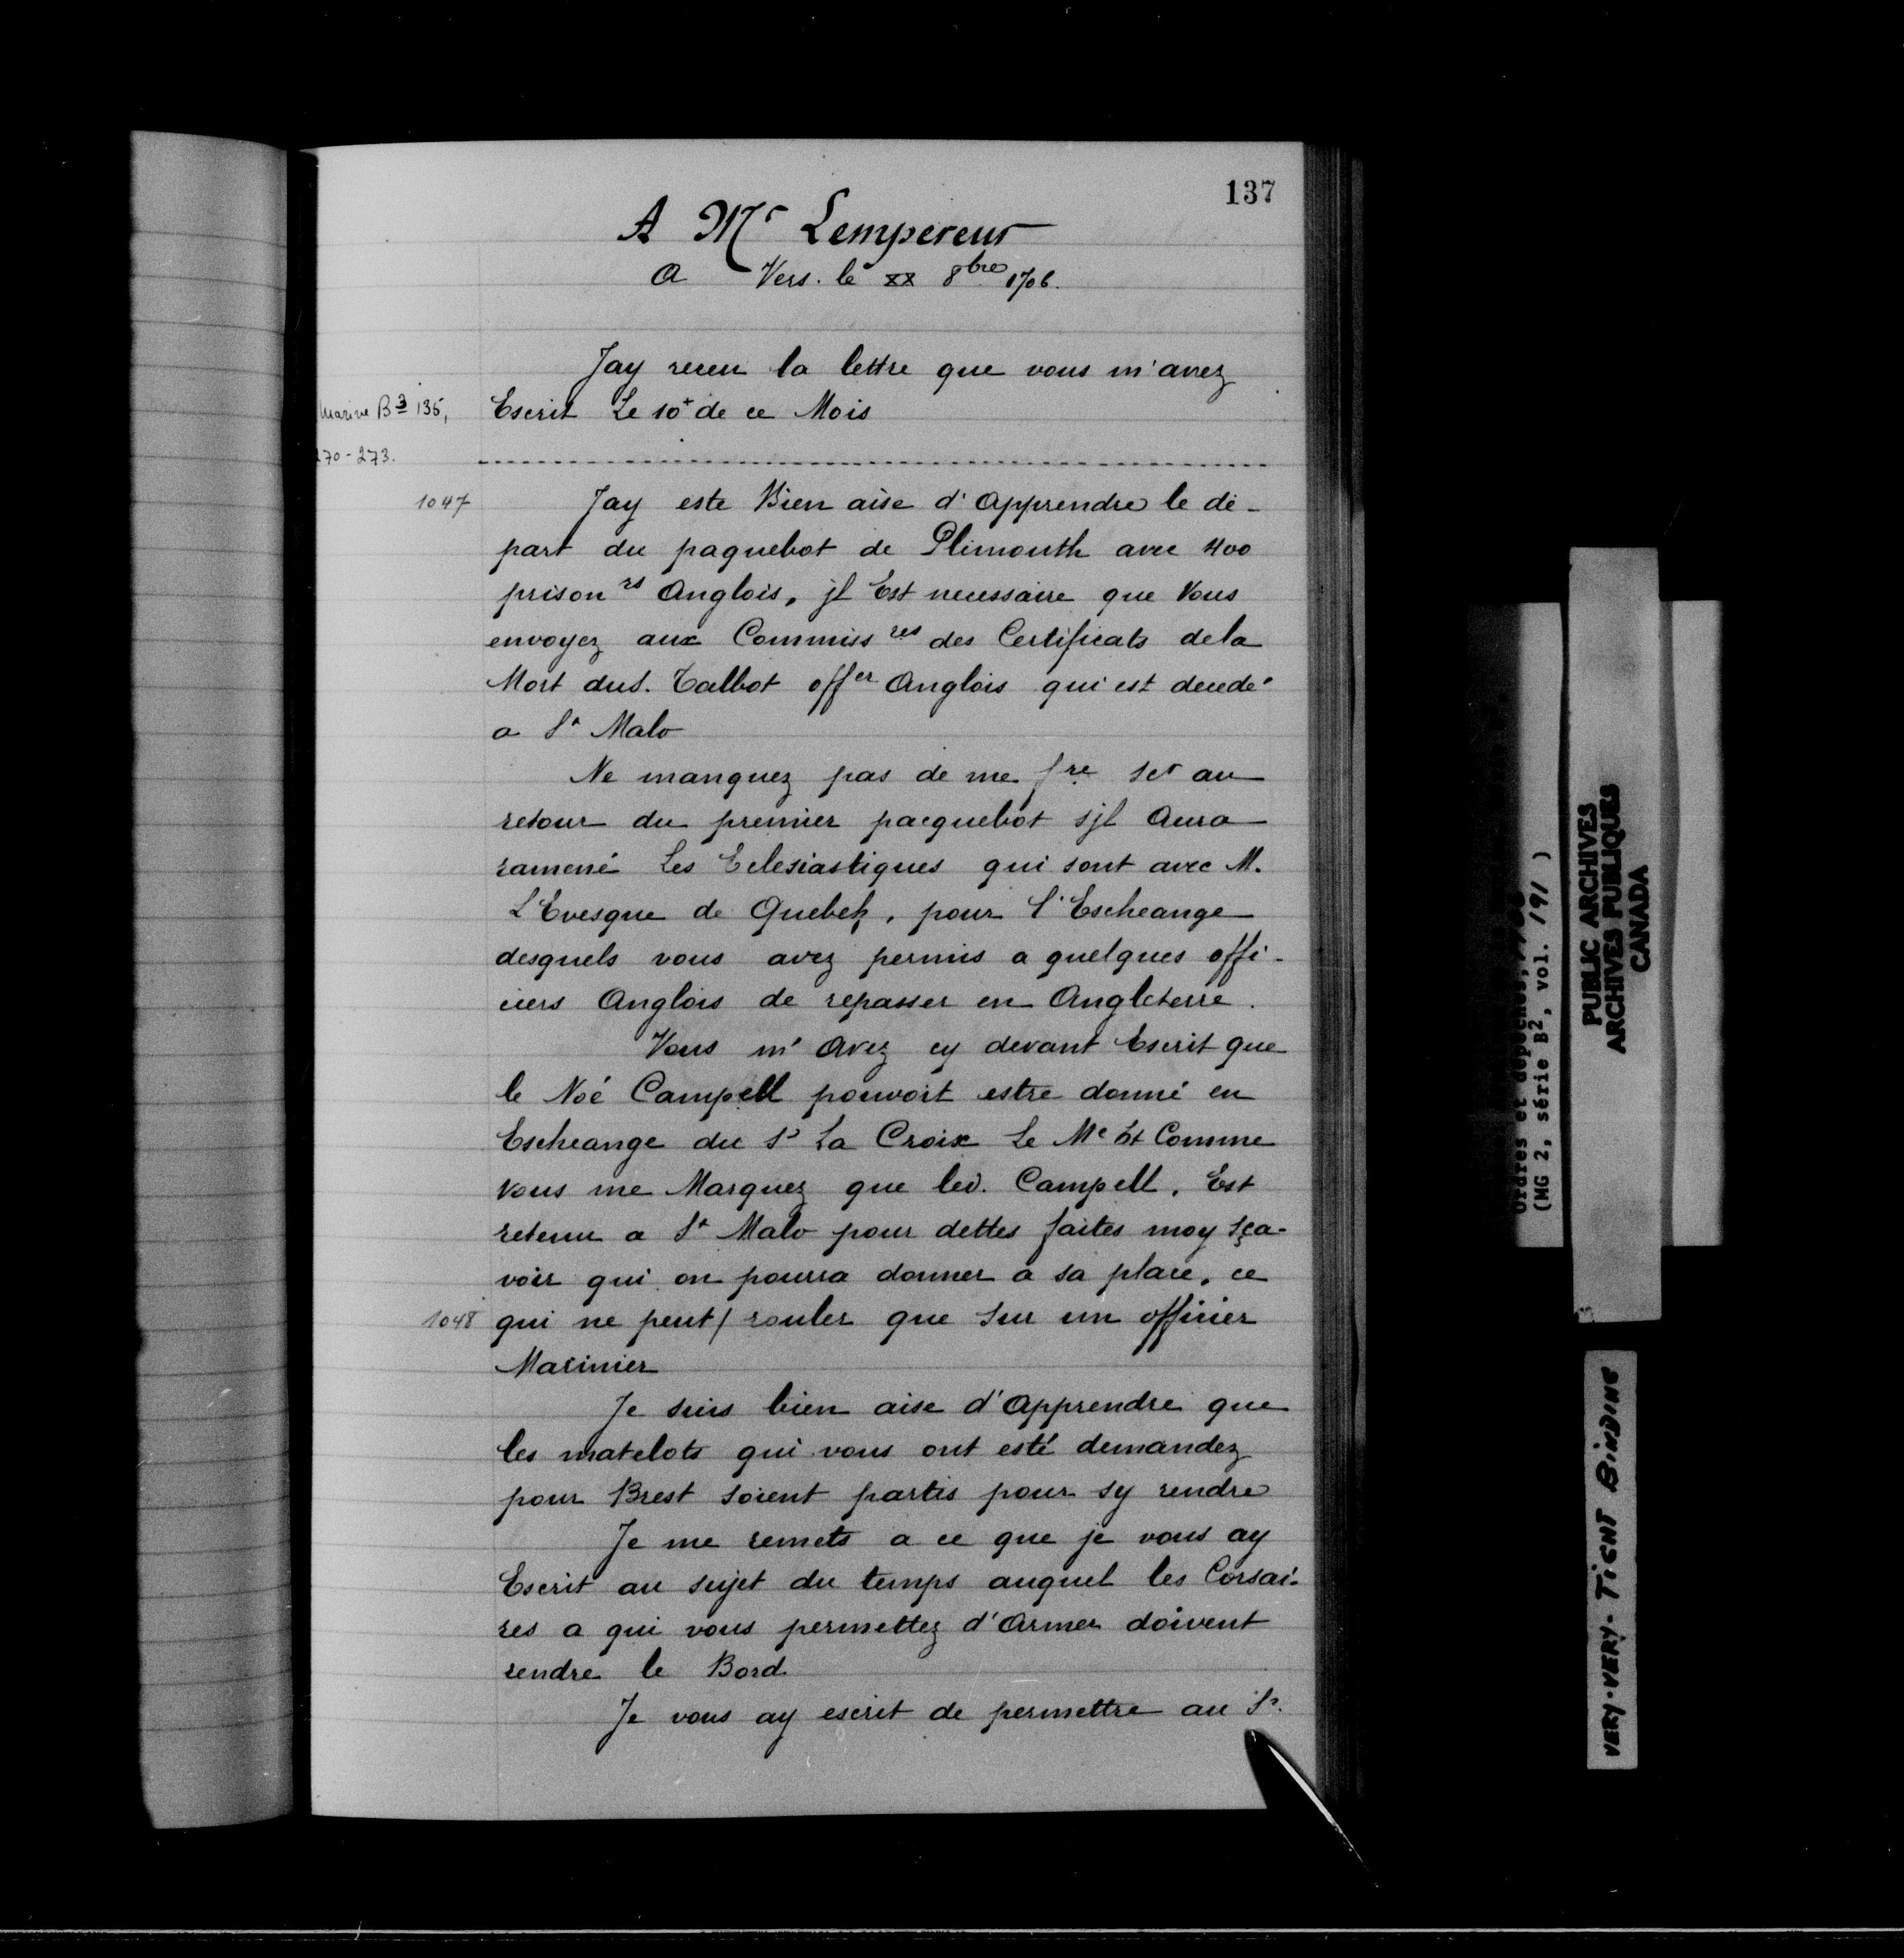 137
A Mr Lempereur
A Vers. le xx 8bre 1706.
Jay receu la lettre que vous m'avez
Marine B3 135,
Escrit Le 10+ de ce Mois
270-273.
1047
Jay este Bien aise d'Apprendre le de-
part du paquebot de Plimouth avec 400
prisonrs Anglois, jl Est necessaire que Vous
envoyez aux Commissres des Certificats dela
Mort dus. Talbot offer Anglois qui est decedé
a St Malo
Ne manquez pas de me fre scr au
retour du premier pacquebot sjl Aura
ramené Les Eclesiastiques qui sont avec M.
L'Evesque de Quebek, pour l'Escheange
desquels vous avez permis a quelques offi-
ciers Anglois de repasser en Angleterre.
Vous m'Avez cy devant Escrit que
le Noé Campell pouvoit estre donné en
Escheange du Sr La Croix Le Me Et Comme
vous me Marquez que led. Campell, Est
retenu a St Malo pour dettes faites moy sça-
voir qui on pourra donner a sa place, ce
1048
qui ne peut/ rouler que sur un officier
Marinier
Je suis bien aise d'Apprendre que
les matelots qui vous ont esté demandez
pour Brest soient partis pour sy rendre
Je me remets a ce que je vous ay
Escrit au sujet du temps auquel les Corsai-
res a qui vous permettez d'Armer doivent
rendre le Bord
Je vous ay escrit de permettre au Sr.
Ordres et dépêches,
(MG 2, série B2, vol. 191 )
PUBLIC ARCHIVES
ARCHIVES PUBLIQUES
CANADA
VERY-VERY-TIGHT BINDING